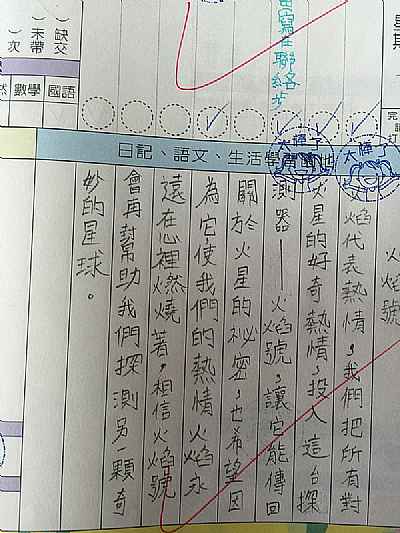 星期
寫在聯絡
）缺交
）未帶
）次
國語
數學
然
完
日記、語文、生活學習園地
太棒了
太棒了
火焰號
火焰代表熱情，我們把所有對
火星的好奇熱情，投入這台探
測器——火焰號，讓它能傳回
關於火星的祕密，也希望因
為它使我們的熱情火焰永
遠在心裡燃燒著，相信火焰號
會再幫助我們探測另一顆奇
妙的星球。